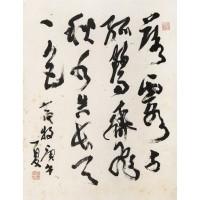 落霞与
孤鶩齊飛
秋水共長天
一色
庚午
夏